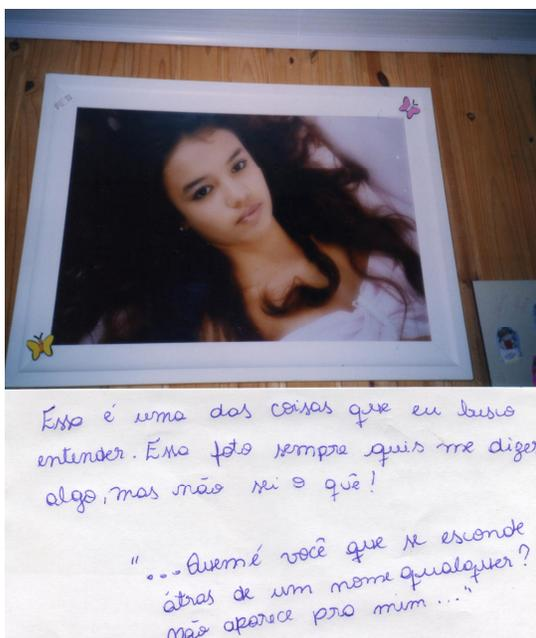 Essa é uma das coisas que eu busco
entender. Essa foto sempre quis me dizer
algo, mas não sei o quê!
"...Quem é você que se esconde
átras de um nome qualquer?
não aparece pra mim..."